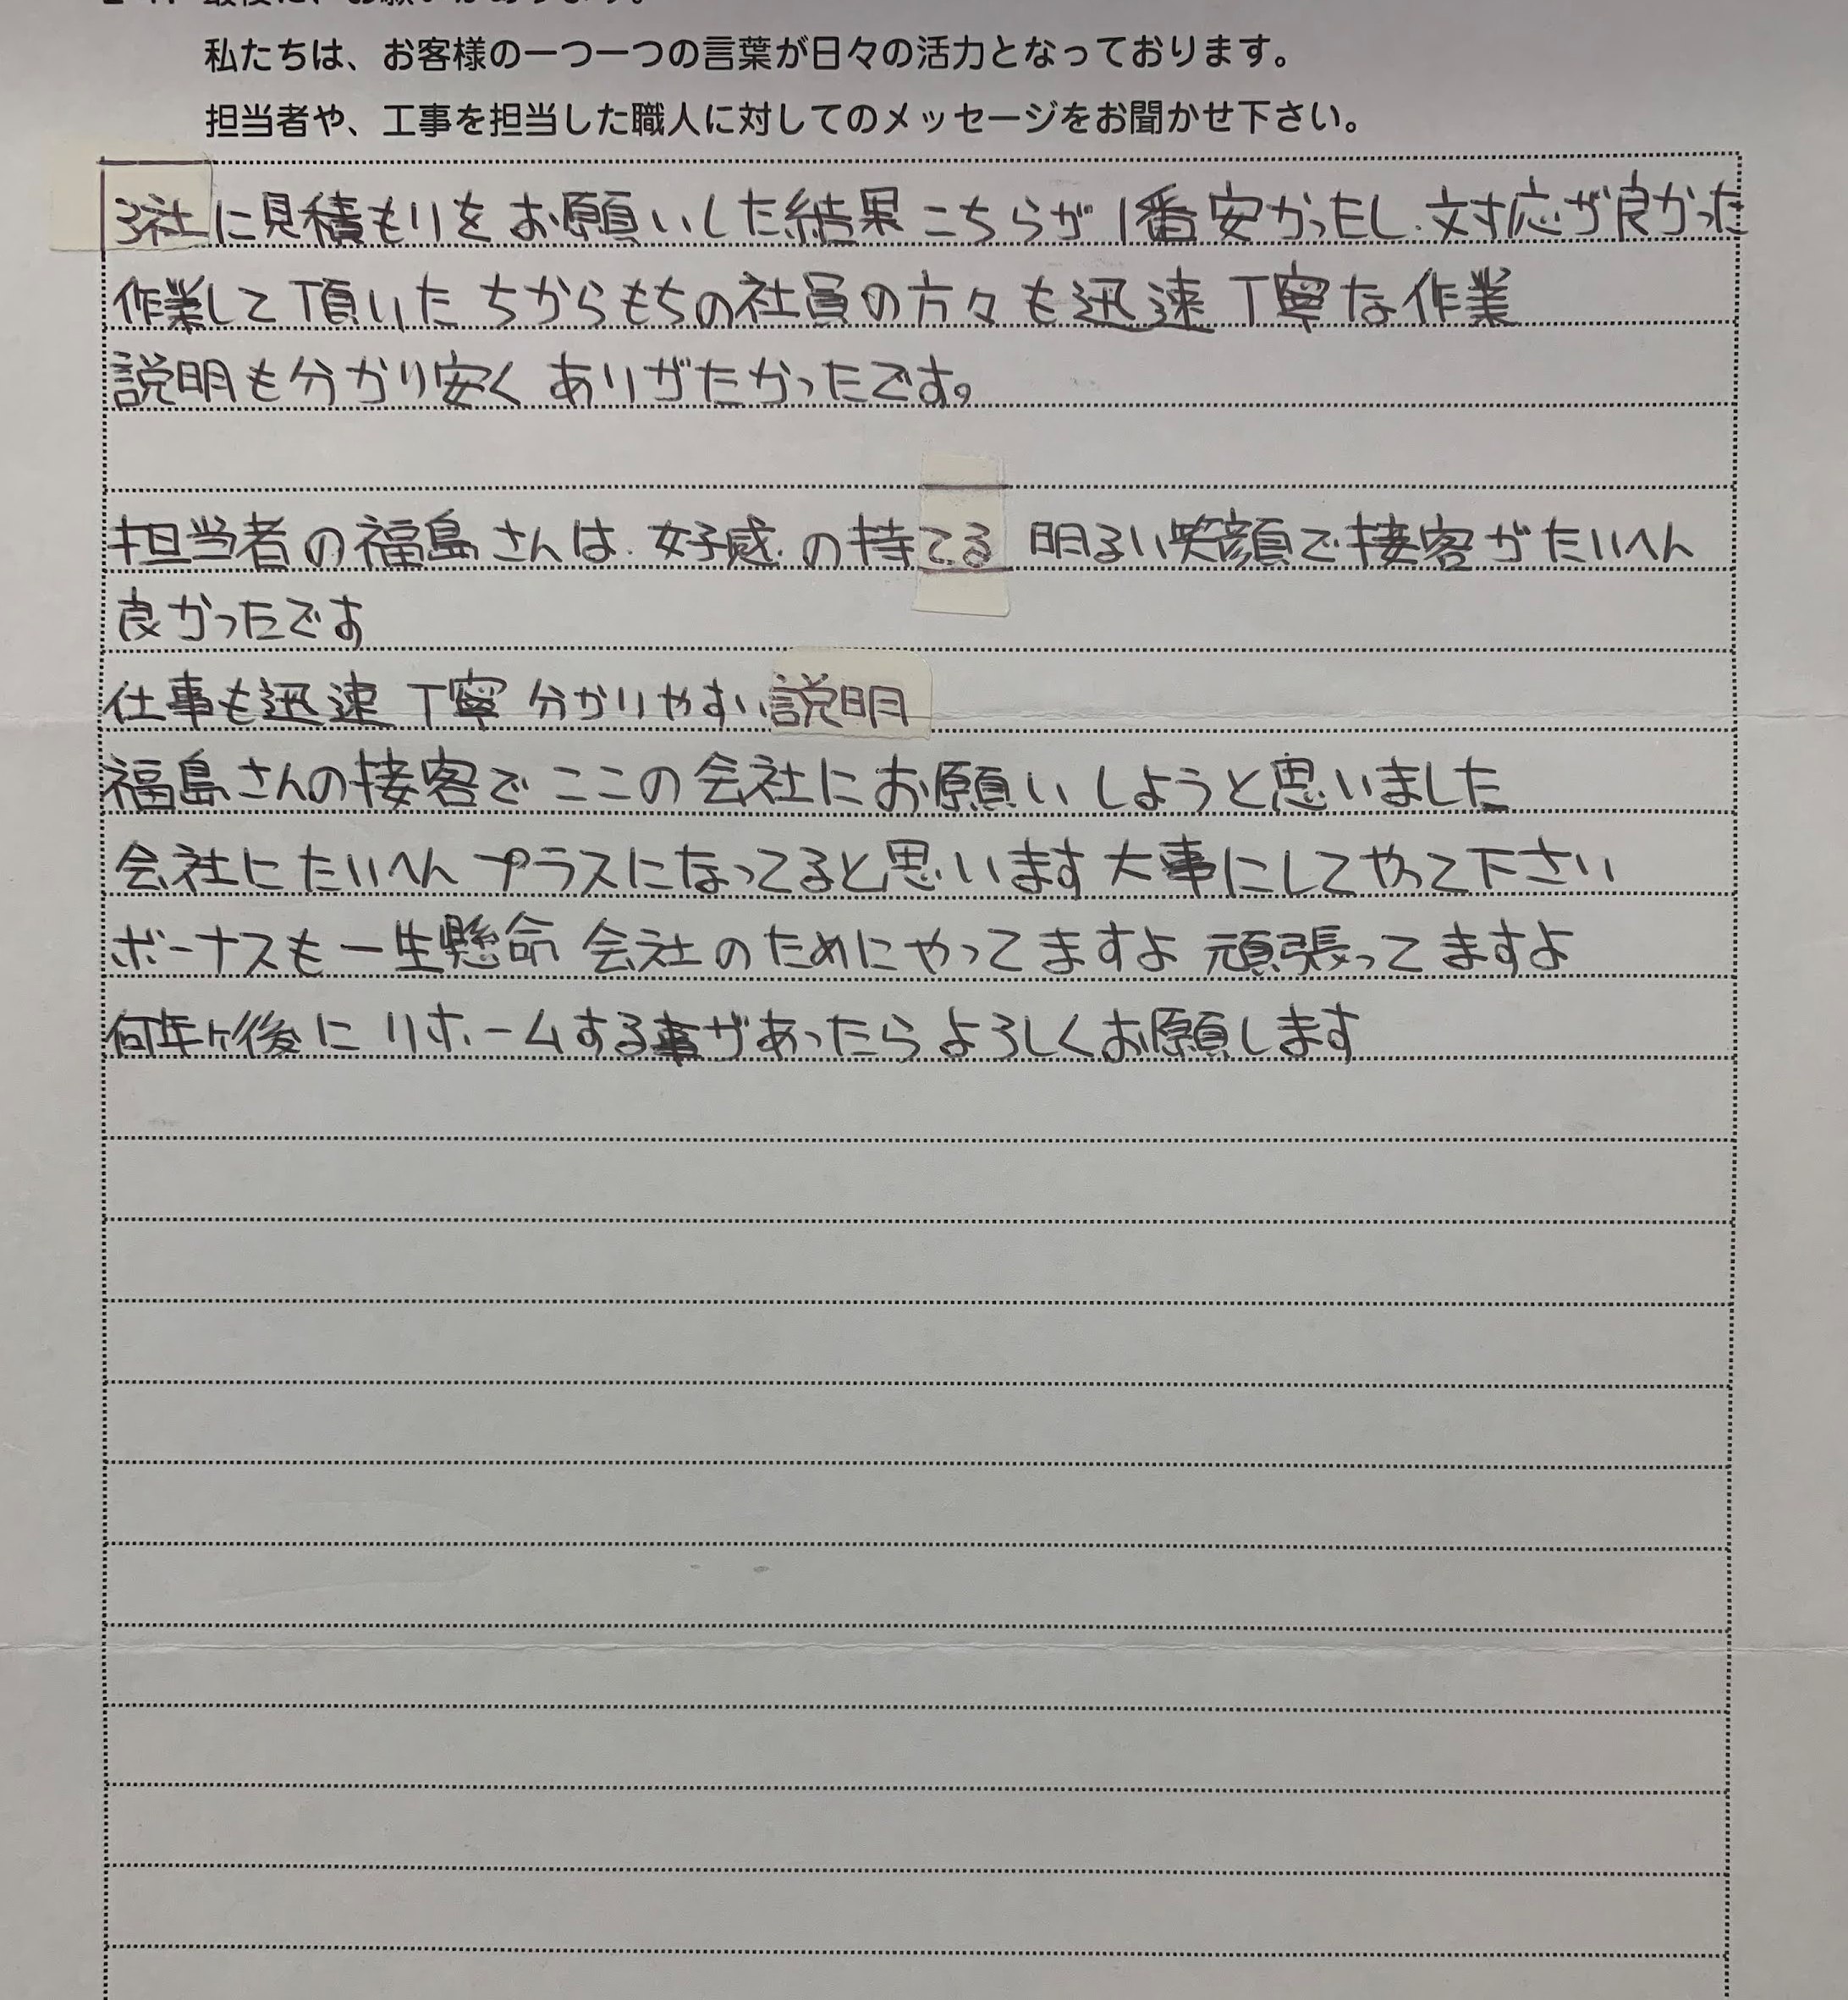 最後に、お願いがあります。
私たちは、お客様の一つ一つの言葉が日々の活力となっております。
担当者や、工事を担当した職人に対してのメッセージをお聞かせ下さい。
3社に見積もりをお願いした結果こちらが1番安かったし.対応が良かった
作業して頂いた ちからもちの社員の方々も迅速 丁寧な作業
説明も分かり安く ありがたかったです。
担当者の福島さんは.好感.の持てる 明るい笑顔で接客がたいへん
良かったです
仕事も迅速 丁寧 分かりやすい説明
福島さんの接客で ここの会社にお願いしようと思いました
会社にたいへん プラスになってると思います 大事にしてやって下さい
ボーナスも一生懸命 会社のためにやってますよ 頑張ってますよ
何年ヶ後に リホームする事があったら よろしくお願します